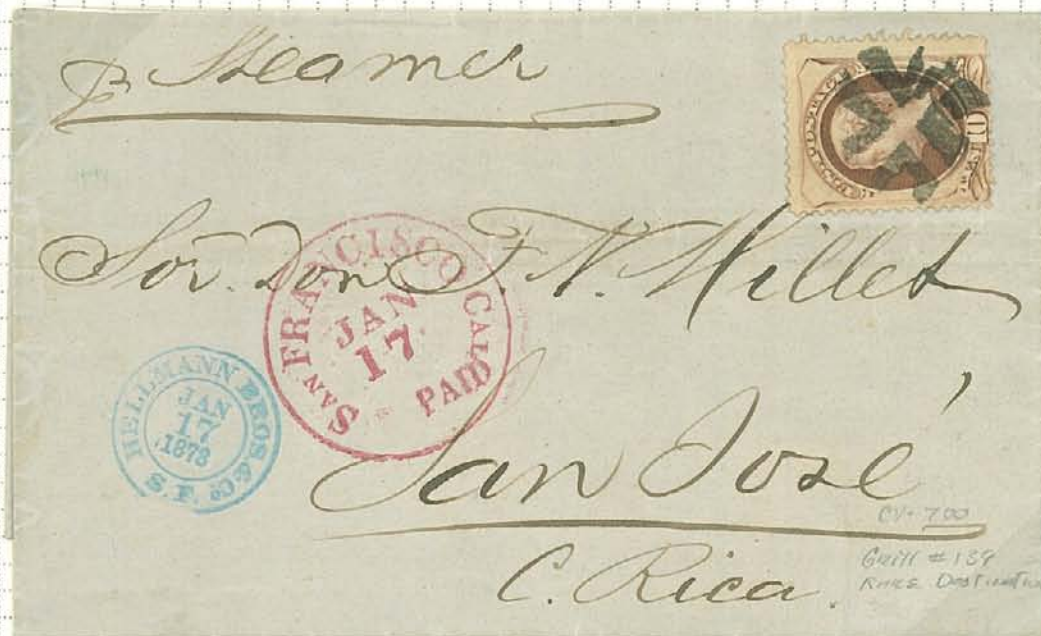 p. Steamer
Sor. Don F. N. Millet
SAN FRANCISCO CAL
JAN
17
PAID
HELLMANN BROS. & Co
JAN
17
1873
S. F.
San José
C. Rica.
CV- 700
Grill #139
RARE Destination
10